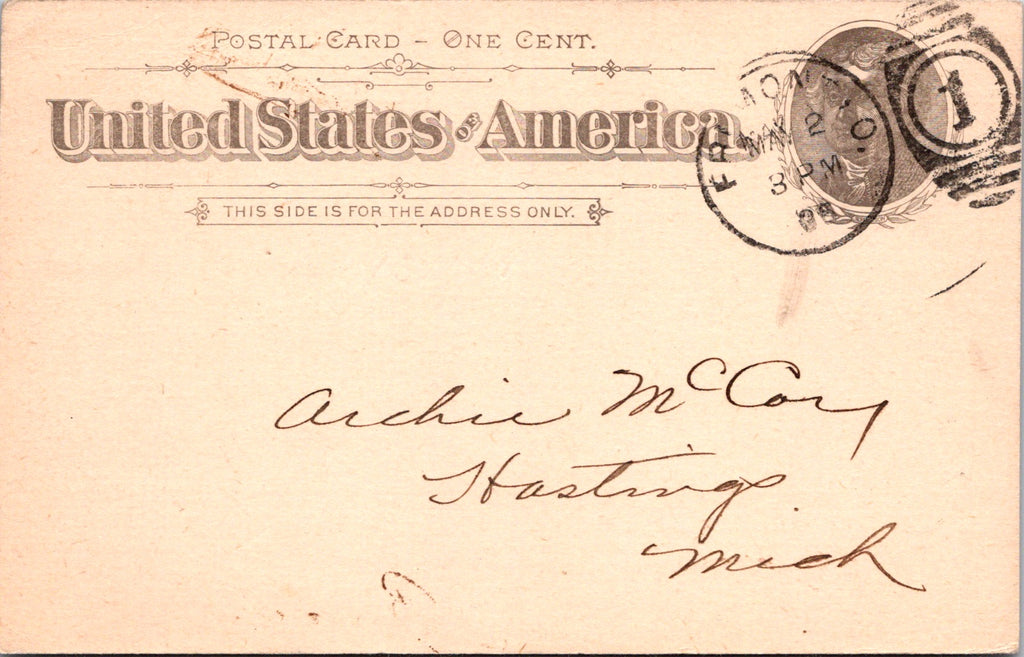 POSTAL CARD – ONE CENT.
United States OF America
THIS SIDE IS FOR THE ADDRESS ONLY.
MAY 2
8 PM
1
Archie McCory
Hastings
Mich